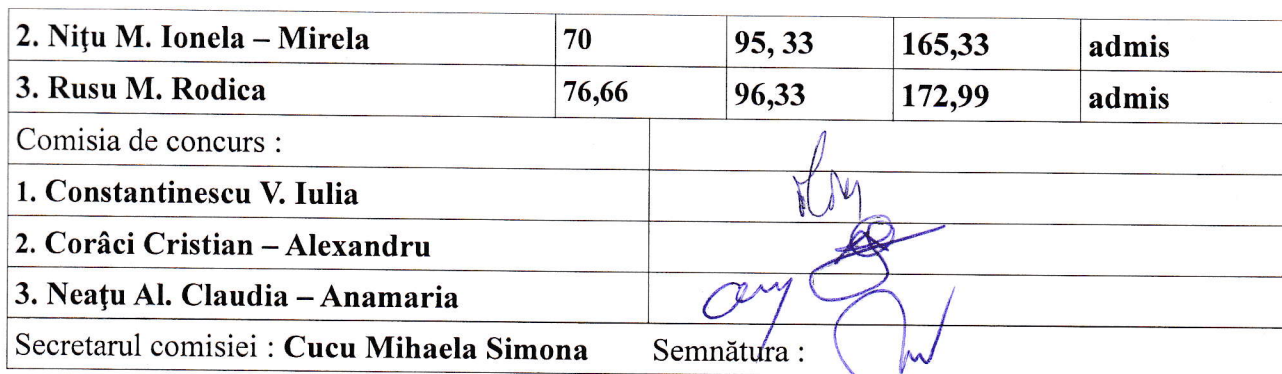 2. Niţu M. Ionela – Mirela 70 95, 33 165,33 admis
3. Rusu M. Rodica 76,66 96,33 172,99 admis
Comisia de concurs :
1. Constantinescu V. Iulia
2. Corâci Cristian – Alexandru
3. Neaţu Al. Claudia – Anamaria
Secretarul comisiei : Cucu Mihaela Simona Semnătura :